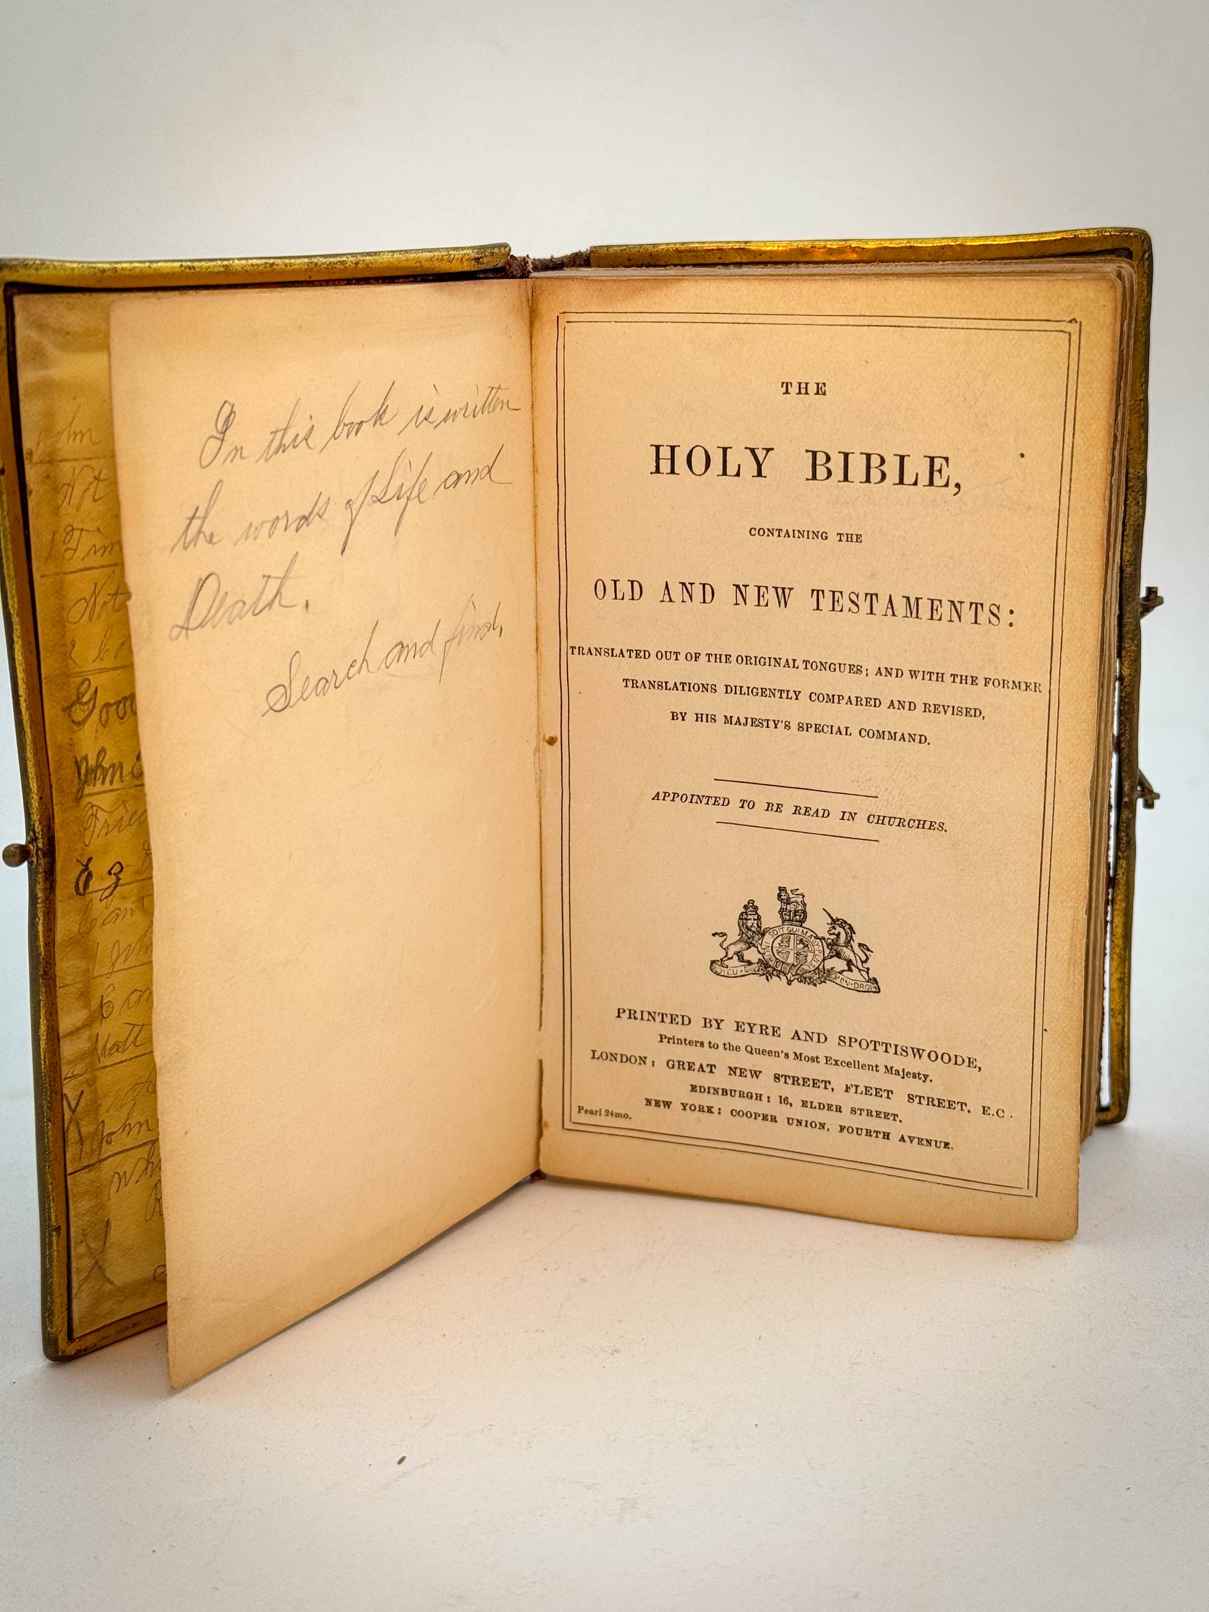 In this book is written
the words of Life and
Death.
Search and find.
John
Not
Tim
Not
Good
John
E
John
Matt
John
THE
HOLY BIBLE,
CONTAINING THE
OLD AND NEW TESTAMENTS:
TRANSLATED OUT OF THE ORIGINAL TONGUES; AND WITH THE FORMER
TRANSLATIONS DILIGENTLY COMPARED AND REVISED,
BY HIS MAJESTY'S SPECIAL COMMAND.
APPOINTED TO BE READ IN CHURCHES.
PRINTED BY EYRE AND SPOTTISWOODE,
Printers to the Queen's Most Excellent Majesty.
LONDON: GREAT NEW STREET, FLEET STREET, E.C.
EDINBURGH: 16, ELDER STREET.
NEW YORK: COOPER UNION, FOURTH AVENUE.
Pearl 24mo.